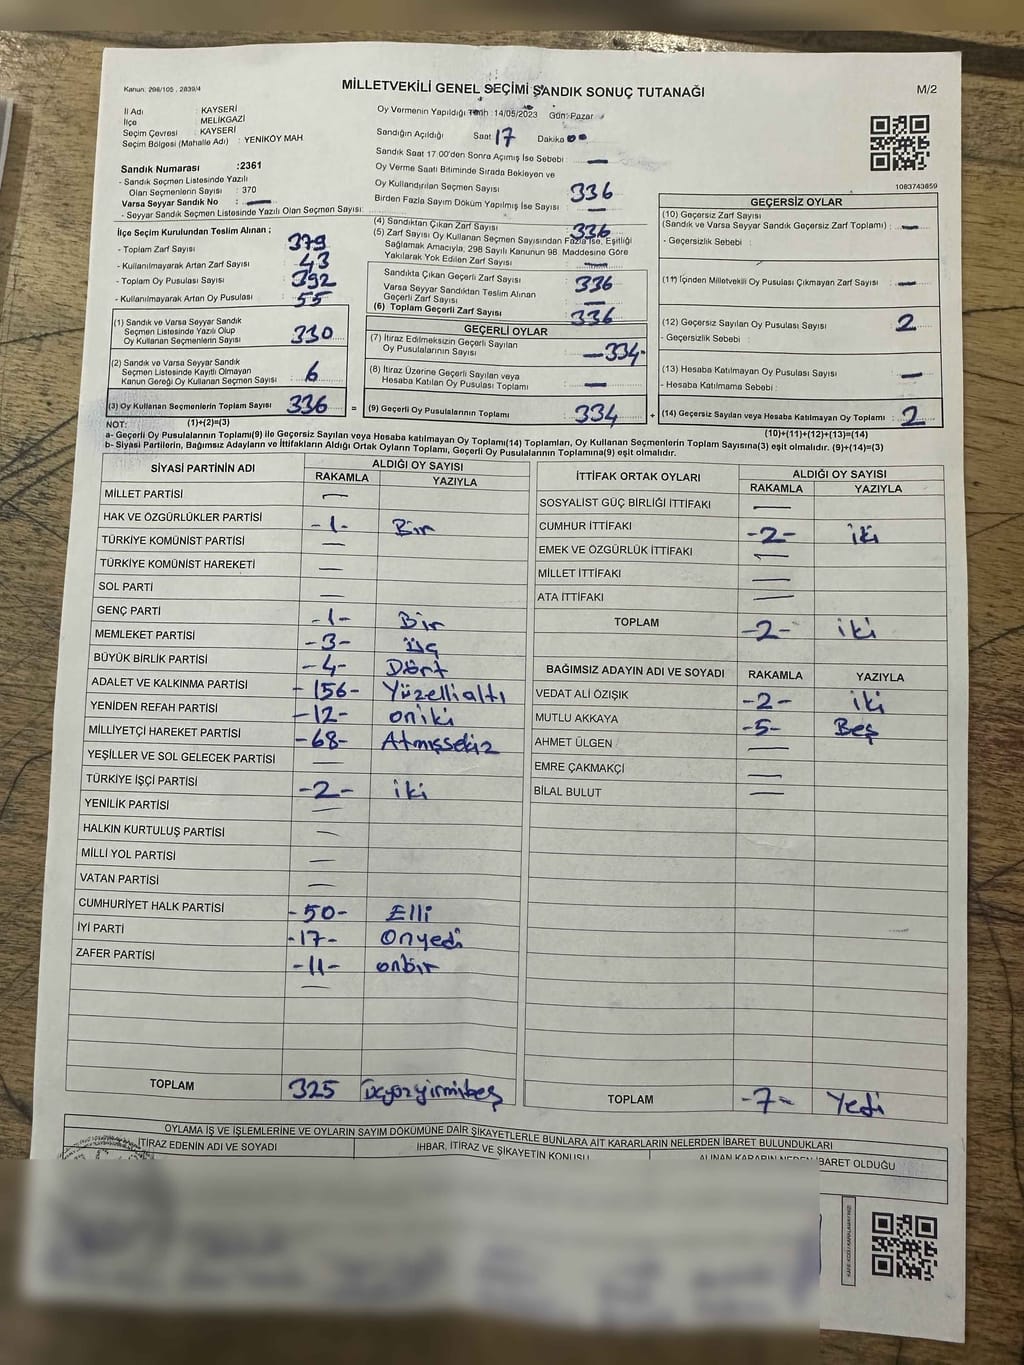 Kanun: 298/105, 2839/4
MİLLETVEKİLİ GENEL SEÇİMİ SANDIK SONUÇ TUTANAĞI
M/2
İl Adı : KAYSERİ
İlçe : MELİKGAZİ
Seçim Çevresi : KAYSERİ
Seçim Bölgesi (Mahalle Adı) : YENİKÖY MAH
Sandık Numarası :2361
- Sandık Seçmen Listesinde Yazılı
Olan Seçmenlerin Sayısı : 370
Varsa Seyyar Sandık No : —
- Seyyar Sandık Seçmen Listesinde Yazılı Olan Seçmen Sayısı:
Oy Vermenin Yapıldığı Tarih :14/05/2023 Gün: Pazar
Sandığın Açıldığı Saat 17 Dakika 00
Sandık Saat 17:00'den Sonra Açımış İse Sebebi : —
Oy Verme Saati Bitiminde Sırada Bekleyen ve
Oy Kullandırılan Seçmen Sayısı 336
Birden Fazla Sayım Döküm Yapılmış İse Sayısı : —
1083743659
İlçe Seçim Kurulundan Teslim Alınan ;
- Toplam Zarf Sayısı : 379
- Kullanılmayarak Artan Zarf Sayısı : 43
- Toplam Oy Pusulası Sayısı : 392
- Kullanılmayarak Artan Oy Pusulası : 55
(1) Sandık ve Varsa Seyyar Sandık
Seçmen Listesinde Yazılı Olup
Oy Kullanan Seçmenlerin Sayısı : 330
(2) Sandık ve Varsa Seyyar Sandık
Seçmen Listesinde Kayıtlı Olmayan
Kanun Gereği Oy Kullanan Seçmen Sayısı : 6
(3) Oy Kullanan Seçmenlerin Toplam Sayısı 336 =
(4) Sandıktan Çıkan Zarf Sayısı : 336
(5) Zarf Sayısı Oy Kullanan Seçmen Sayısından Fazla İse, Eşitliği
Sağlamak Amacıyla, 298 Sayılı Kanunun 98 Maddesine Göre
Yakılarak Yok Edilen Zarf Sayısı : —
Sandıkta Çıkan Geçerli Zarf Sayısı : 336
Varsa Seyyar Sandıktan Teslim Alınan
Geçerli Zarf Sayısı : —
(6) Toplam Geçerli Zarf Sayısı : 336
GEÇERLİ OYLAR
(7) İtiraz Edilmeksizin Geçerli Sayılan
Oy Pusulalarının Sayısı : -334-
(8) İtiraz Üzerine Geçerli Sayılan veya
Hesaba Katılan Oy Pusulası Toplamı : —
(9) Geçerli Oy Pusulalarının Toplamı : 334 +
GEÇERSİZ OYLAR
(10) Geçersiz Zarf Sayısı
(Sandık ve Varsa Seyyar Sandık Geçersiz Zarf Toplamı) : —
- Geçersizlik Sebebi :
(11) İçinden Milletvekili Oy Pusulası Çıkmayan Zarf Sayısı : —
(12) Geçersiz Sayılan Oy Pusulası Sayısı : 2
- Geçersizlik Sebebi :
(13) Hesaba Katılmayan Oy Pusulası Sayısı : —
- Hesaba Katılmama Sebebi :
(14) Geçersiz Sayılan veya Hesaba Katılmayan Oy Toplamı : 2
NOT: (1)+(2)=(3) (10)+(11)+(12)+(13)=(14)
a- Geçerli Oy Pusulalarının Toplamı(9) ile Geçersiz Sayılan veya Hesaba katılmayan Oy Toplamı(14) Toplamları, Oy Kullanan Seçmenlerin Toplam Sayısına(3) eşit olmalıdır. (9)+(14)=(3)
b- Siyasi Partilerin, Bağımsız Adayların ve İttifakların Aldığı Ortak Oyların Toplamı, Geçerli Oy Pusulalarının Toplamına(9) eşit olmalıdır.
SİYASİ PARTİNİN ADI ALDIĞI OY SAYISI
RAKAMLA YAZIYLA
MİLLET PARTİSİ —
HAK VE ÖZGÜRLÜKLER PARTİSİ -1- Bir
TÜRKİYE KOMÜNİST PARTİSİ —
TÜRKİYE KOMÜNİST HAREKETİ —
SOL PARTİ —
GENÇ PARTİ -1- Bir
MEMLEKET PARTİSİ -3- üç
BÜYÜK BİRLİK PARTİSİ -4- Dört
ADALET VE KALKINMA PARTİSİ -156- Yüzellialtı
YENİDEN REFAH PARTİSİ -12- oniki
MİLLİYETÇİ HAREKET PARTİSİ -68- Atmışsekiz
YEŞİLLER VE SOL GELECEK PARTİSİ —
TÜRKİYE İŞÇİ PARTİSİ -2- iki
YENİLİK PARTİSİ —
HALKIN KURTULUŞ PARTİSİ —
MİLLİ YOL PARTİSİ —
VATAN PARTİSİ —
CUMHURİYET HALK PARTİSİ -50- Elli
İYİ PARTİ -17- Onyedi
ZAFER PARTİSİ -11- onbir
—
TOPLAM 325 üçyüzyirmibeş
İTTİFAK ORTAK OYLARI ALDIĞI OY SAYISI
RAKAMLA YAZIYLA
SOSYALİST GÜÇ BİRLİĞİ İTTİFAKI —
CUMHUR İTTİFAKI -2- iki
EMEK VE ÖZGÜRLÜK İTTİFAKI —
MİLLET İTTİFAKI —
ATA İTTİFAKI —
TOPLAM -2- iki
BAĞIMSIZ ADAYIN ADI VE SOYADI RAKAMLA YAZIYLA
VEDAT ALİ ÖZIŞIK -2- iki
MUTLU AKKAYA -5- Beş
AHMET ÜLGEN —
EMRE ÇAKMAKÇİ —
BİLAL BULUT —
TOPLAM -7- Yedi
OYLAMA İŞ VE İŞLEMLERİNE VE OYLARIN SAYIM DÖKÜMÜNE DAİR ŞİKAYETLERLE BUNLARA AİT KARARLARIN NELERDEN İBARET BULUNDUKLARI
İTİRAZ EDENİN ADI VE SOYADI İHBAR, İTİRAZ VE ŞİKAYETİN KONUSU ALINAN KARARIN NEDEN İBARET OLDUĞU